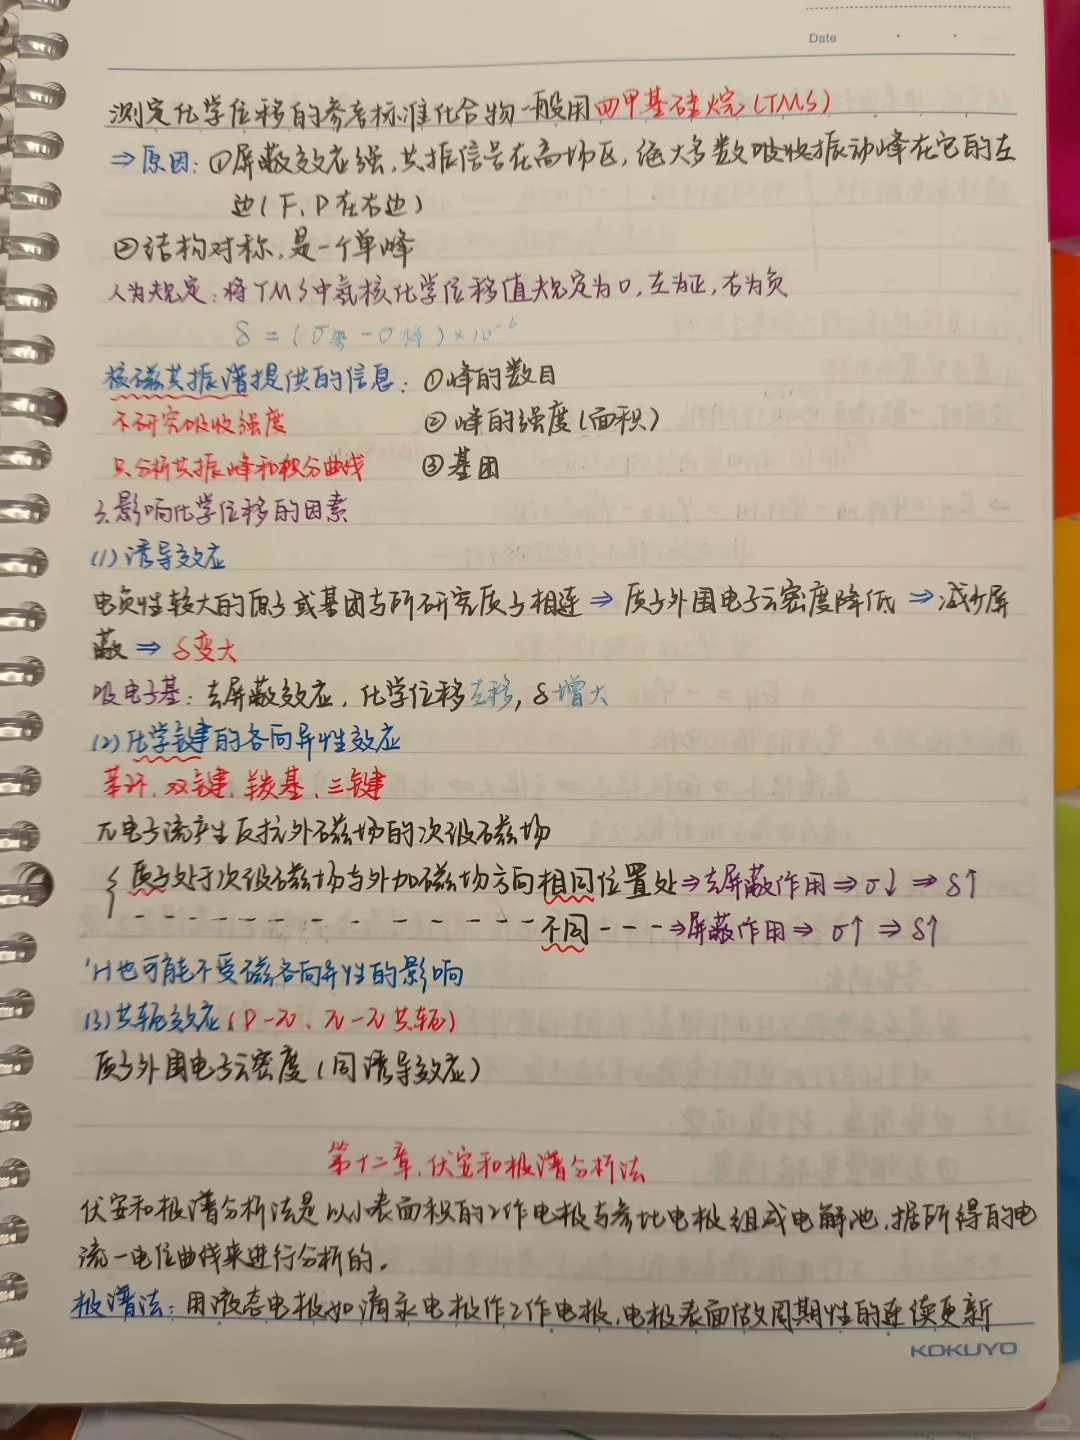 Date
测定化学位移的参考标准化合物一般用四甲基硅烷(TMS)
⇒原因:①屏蔽效应强,共振信号在高场区,绝大多数吸收振动峰在它的左
边(F、P在右边)
②结构对称,是一个单峰
人为规定:将TMS中氢核化学位移值规定为0,左为正,右为负
δ=(σ参-σ样)×10⁻⁶
核磁共振谱提供的信息:①峰的数目
不研究吸收强度 ②峰的强度(面积)
只分析共振峰和积分曲线 ③基团
3.影响化学位移的因素
(1)诱导效应
电负性较大的原子或基团与所研究质子相连⇒质子外围电子云密度降低⇒减少屏
蔽⇒δ变大
吸电子基:去屏蔽效应,化学位移左移,δ增大
(2)化学键的各向异性效应
苯环、双键、羰基、三键
π电子流产生反抗外磁场的次级磁场
{质子处于次级磁场与外加磁场方向相同位置处⇒去屏蔽作用⇒σ↓⇒δ↑
- - - - - - - - - - - - - - 不同 - - -⇒屏蔽作用⇒σ↑⇒δ↑
¹H也可能不受磁各向异性的影响
(3)共轭效应(P-π、π-π共轭)
质子外围电子云密度(同诱导效应)
第十二章、伏安和极谱分析法
伏安和极谱分析法是以小表面积的工作电极与参比电极组成电解池,据所得的电
流-电位曲线来进行分析的。
极谱法:用液态电极如滴汞电极作工作电极,电极表面做周期性的连续更新
KOKUYO